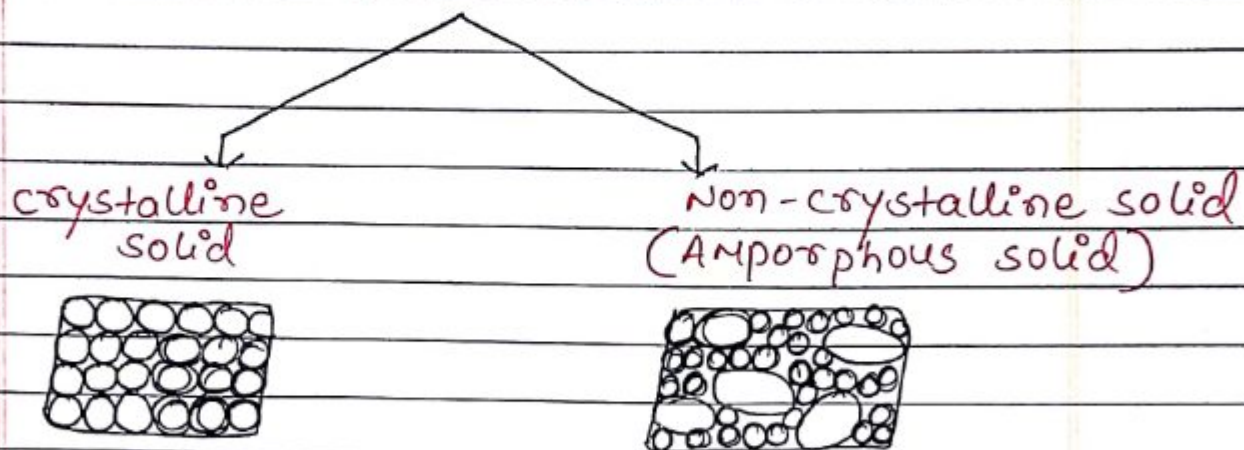 crystalline
solid
Non-crystalline solid
(Amporphous solid)